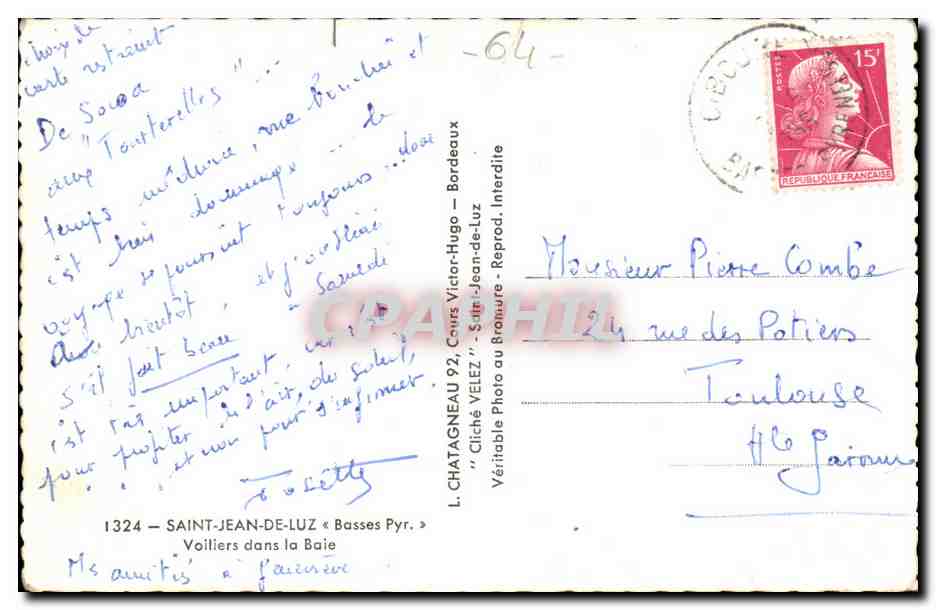 choix de
carte restreint
De Socoa
aux "Tourterelles" ...
temps médiocre, une bouchée et
c'est bien dommage ... le
voyage se poursuit toujours ... donc
à bientôt, et j'oubliais
s'il fait beau Samedi
c'est très important, c'est
pour profiter de l'air, du soleil,
et non pour s'enfermer.
Josette
1324 — SAINT-JEAN-DE-LUZ « Basses Pyr. »
Voiliers dans la Baie
Mes amitiés à Geneviève
L. CHATAGNEAU 92, Cours Victor-Hugo — Bordeaux
" Cliché VELEZ " - Saint-Jean-de-Luz
Véritable Photo au Bromure - Reprod. Interdite
-64-
CIBOURE
POSTES
15F
REPUBLIQUE FRANÇAISE
Monsieur Pierre Combe
24 rue des Potiers
Toulouse
Hte Garonne
CPAPHIL